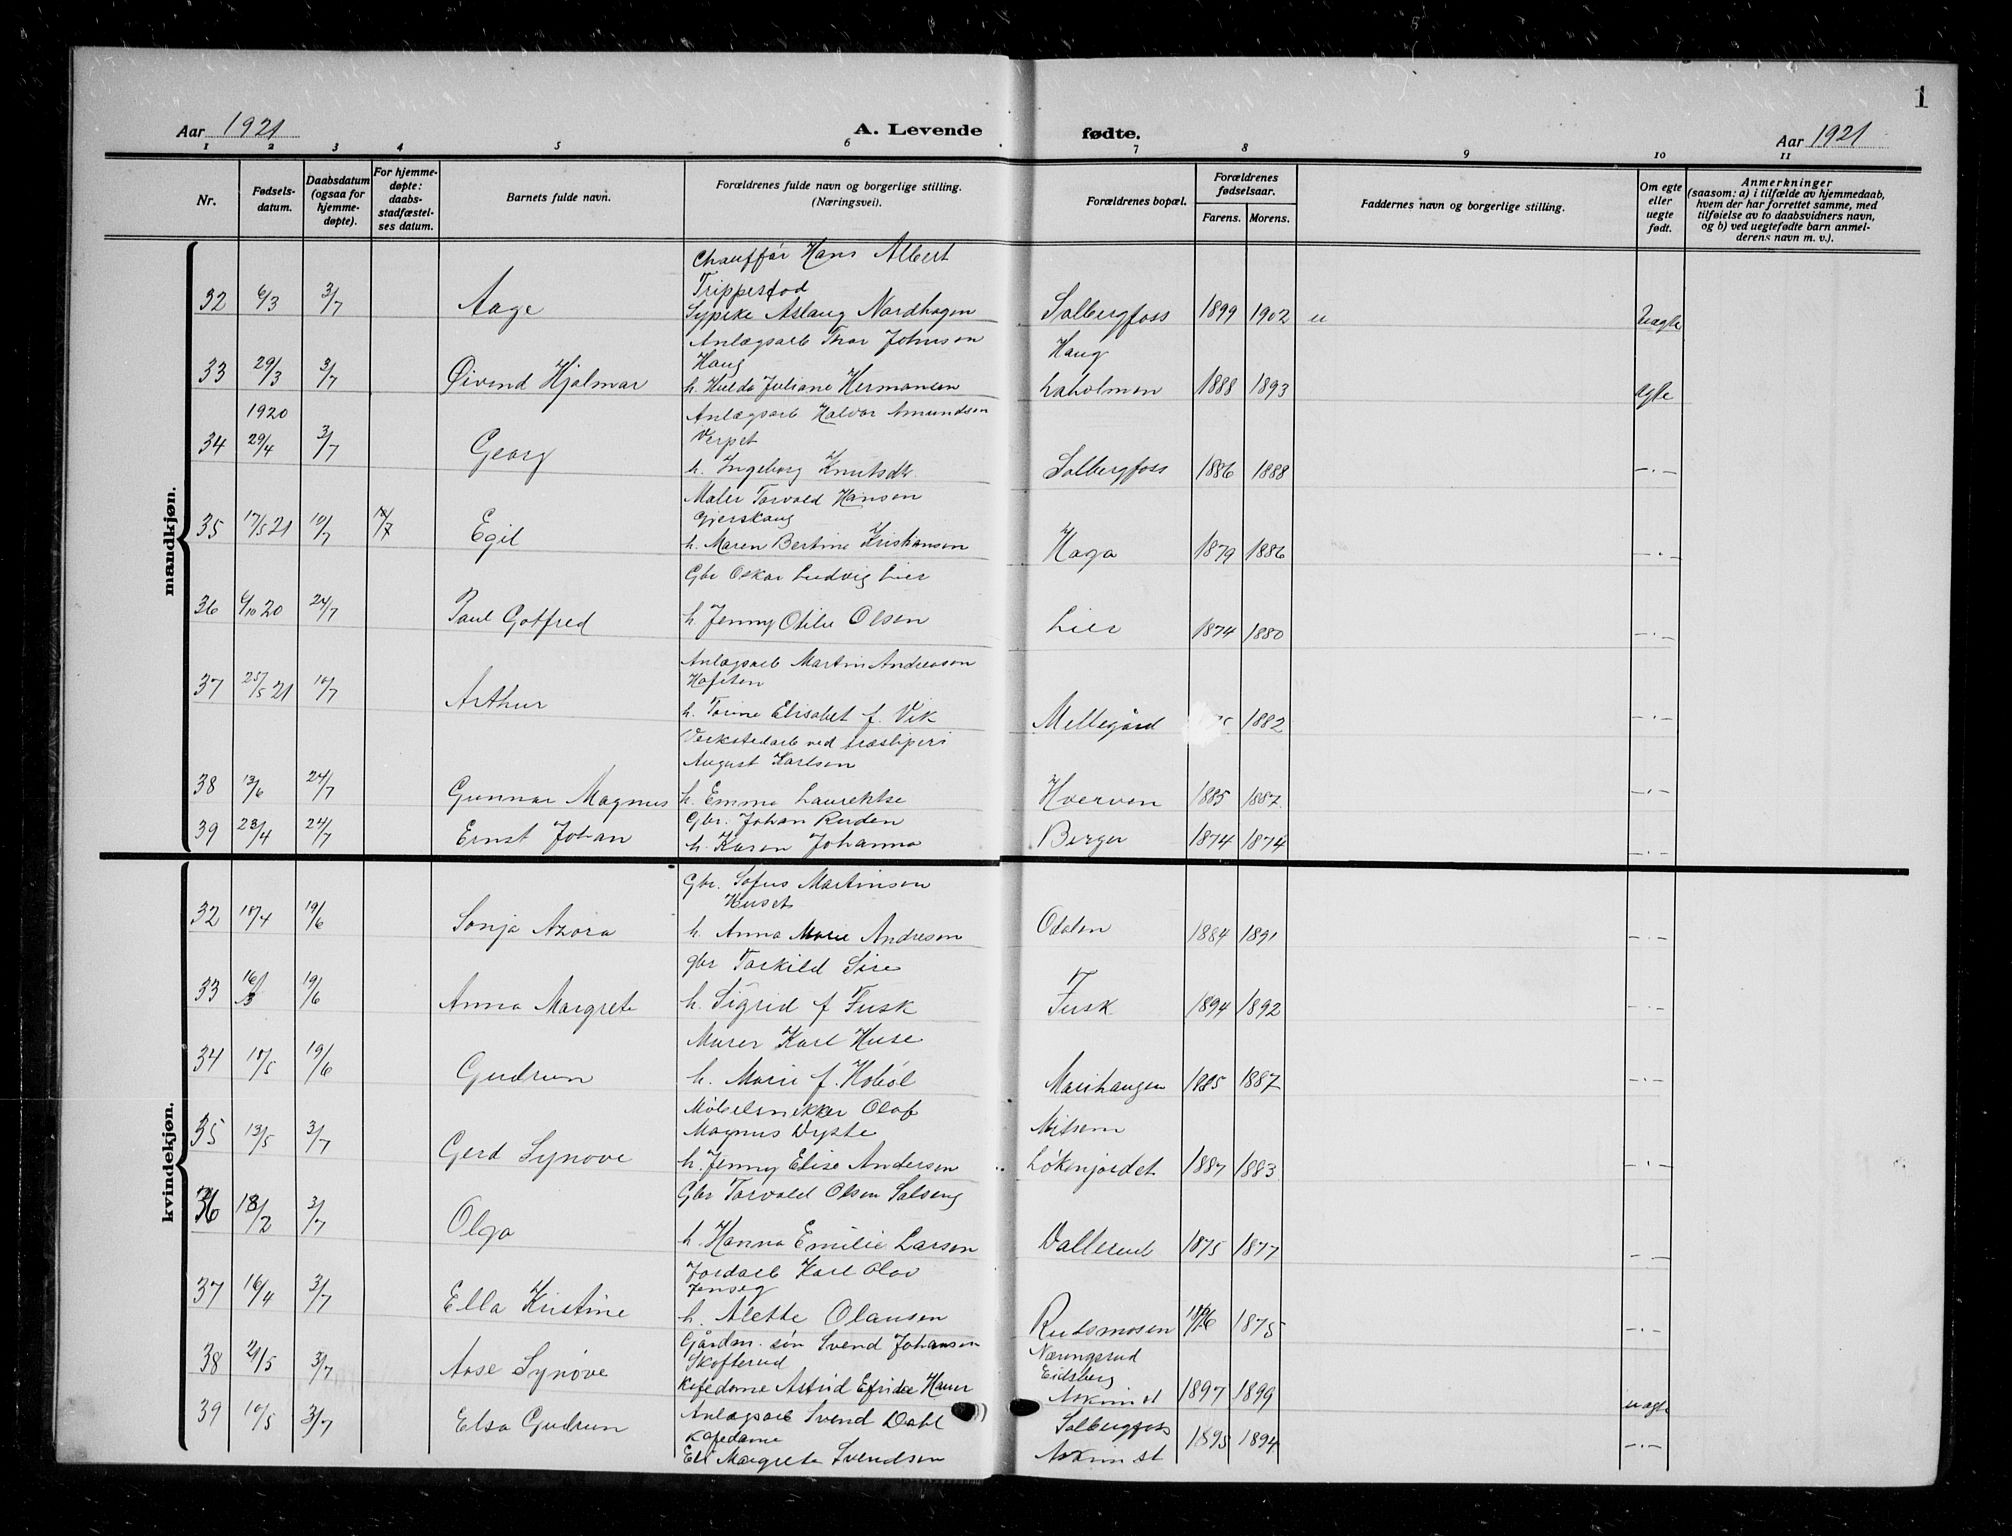 1
Aar 1921 A. Levende fødte. Aar 1921
1 2 3 4 5 6 7 8 9 10 11
Nr. Fødsels-datum. Daabsdatum (ogsaa for hjemme-døpte). For hjemme-døpte: daabs-stadfæstel-ses datum. Barnets fulde navn. Forældrenes fulde navn og borgerlige stilling. (Næringsvei). Forældrenes bopæl. Forældrenes fødselsaar. Farens. Morens. Faddernes navn og borgerlige stilling. Om egte eller uegte født. Anmerkninger (saasom: a) i tilfælde av hjemmedaab, hvem der har forrettet samme, med tilføielse av to daabsvidners navn, og b) ved uegtefødte barn anmel-derens navn m. v.).
mandkjøn.
Chauffør Hans Albert
Trippestod
32 6/3 3/7 Aage Sypike Aslaug Nordhagen Solbergfoss 1899 1902 u Uegte
Anlægsarb Thor Johnson Haug
Haug
33 29/3 3/7 Øivind Hjalmar h. Hulda Juliane Hermansen Laholmen 1888 1893 Egte
1920 Anlægsarb Halvor Amundsen
34 29/4 3/7 Verpet
Georg h. Ingeborg Knutsdtr. Solbergfoss 1886 1888 -.-
Maler Torvald Hansen
Gjerskaug
35 17/5 21 10/7 10/7 Egil h. Maren Bertine Kristiansen Haga 1879 1886 -.-
Gbr Oskar Ludvig Lier
36 6/10 20 24/7 Paul Gotfred h Jenny Otilie Olsen Lier 1874 1880 -.-
Anlægsarb Martin Andreasen
37 25/5 21 10/7 Arthur h. Elisabet f. Vik Mellegård 1882 -.-
Verkstedarb ved træsliperi
August Karlsen
38 13/6 24/7 Gunnar Magnus h. Emma Laurentse Hverven 1885 1887 -.-
39 23/4 24/7 Ernst Johan Gbr. Johan Ruden
h. Karen Johanna Berger 1874 1874 -.-
kvindekjøn.
Gbr. Sofus Martinsen
Huset
32 18/4 19/6 Sonja Azora h. Anna Marie Andresen Odalen 1884 1891 -.-
gbr Torkild Sire
33 16/3 19/6 Anna Margrete h. Sigrid f Fusk Fusk 1894 1892 -.-
Murer Karl Huse
34 18/5 19/6 Gudrun h. Marie f. Hobøl Marihaugen 1885 1887 -.-
Møbelsnikker Olaf
Magnus Dyste
35 13/5 3/7 Gerd Synøve h. Jenny Elise Andersen Løkenjordet 1887 1883 -.-
Gbr Torvald Olsen Solseng
36 18/2 3/7 Olga h. Hanna Emilie Larsen Vallerud 1875 1877 -.-
Jordarb Karl Olav
Jenseg
37 16/4 3/7 Ella Kristine h. Alette Olausen Rudsmosen 1876 1875 -.-
Gårdm. søn Svend Johansen Næringsrud
Skofterud Eidsberg
38 21/5 3/7 Aase Synøve Kafedame Astrid Efride Askim st 1897 1899 uegte
39 10/5 3/7 Elsa Gudrun Anlægsarb Svend Dahl Solbergfoss
Kafedame 1895 1894 -.-
Eli Margrete Svendsen Askim st